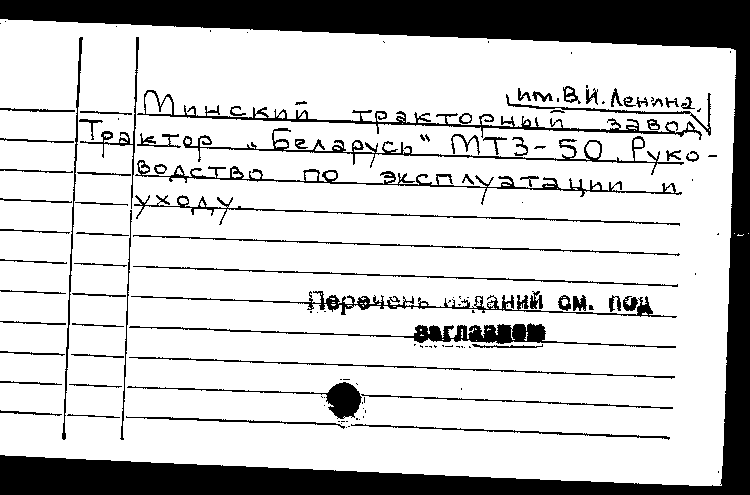 им. В.И. Ленина.
Минский тракторный завод
Трактор „Беларусь" МТЗ-50. Руко-
водство по эксплуатации и
уходу.
Перечень изданий см. под
заглавием